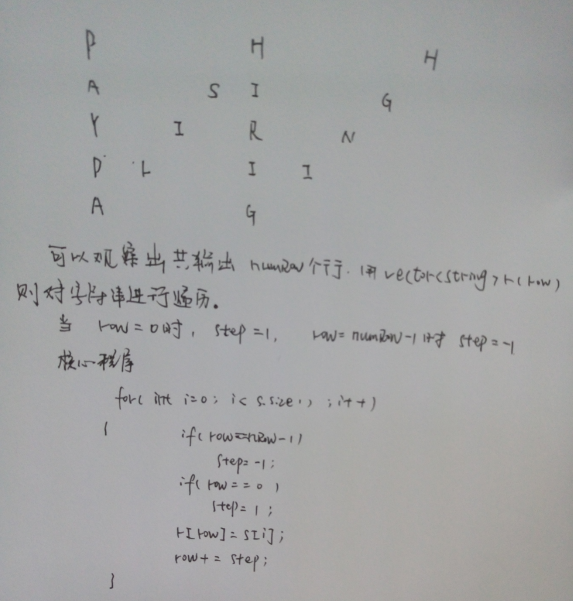 P H H
A S I G
Y I R N
D L I I
A G
可以观察出共输出 numRow个行子. 用 vector<string> r(row)
则对字符串进行遍历。
当 row=0时, step=1, row=numRow-1时 step=-1
核心程序
for( int i=0; i< s.size() ; i++)
{ if( row==nRow-1)
step=-1;
if( row==0)
step=1;
r[row]=s[i];
row+=step;
}